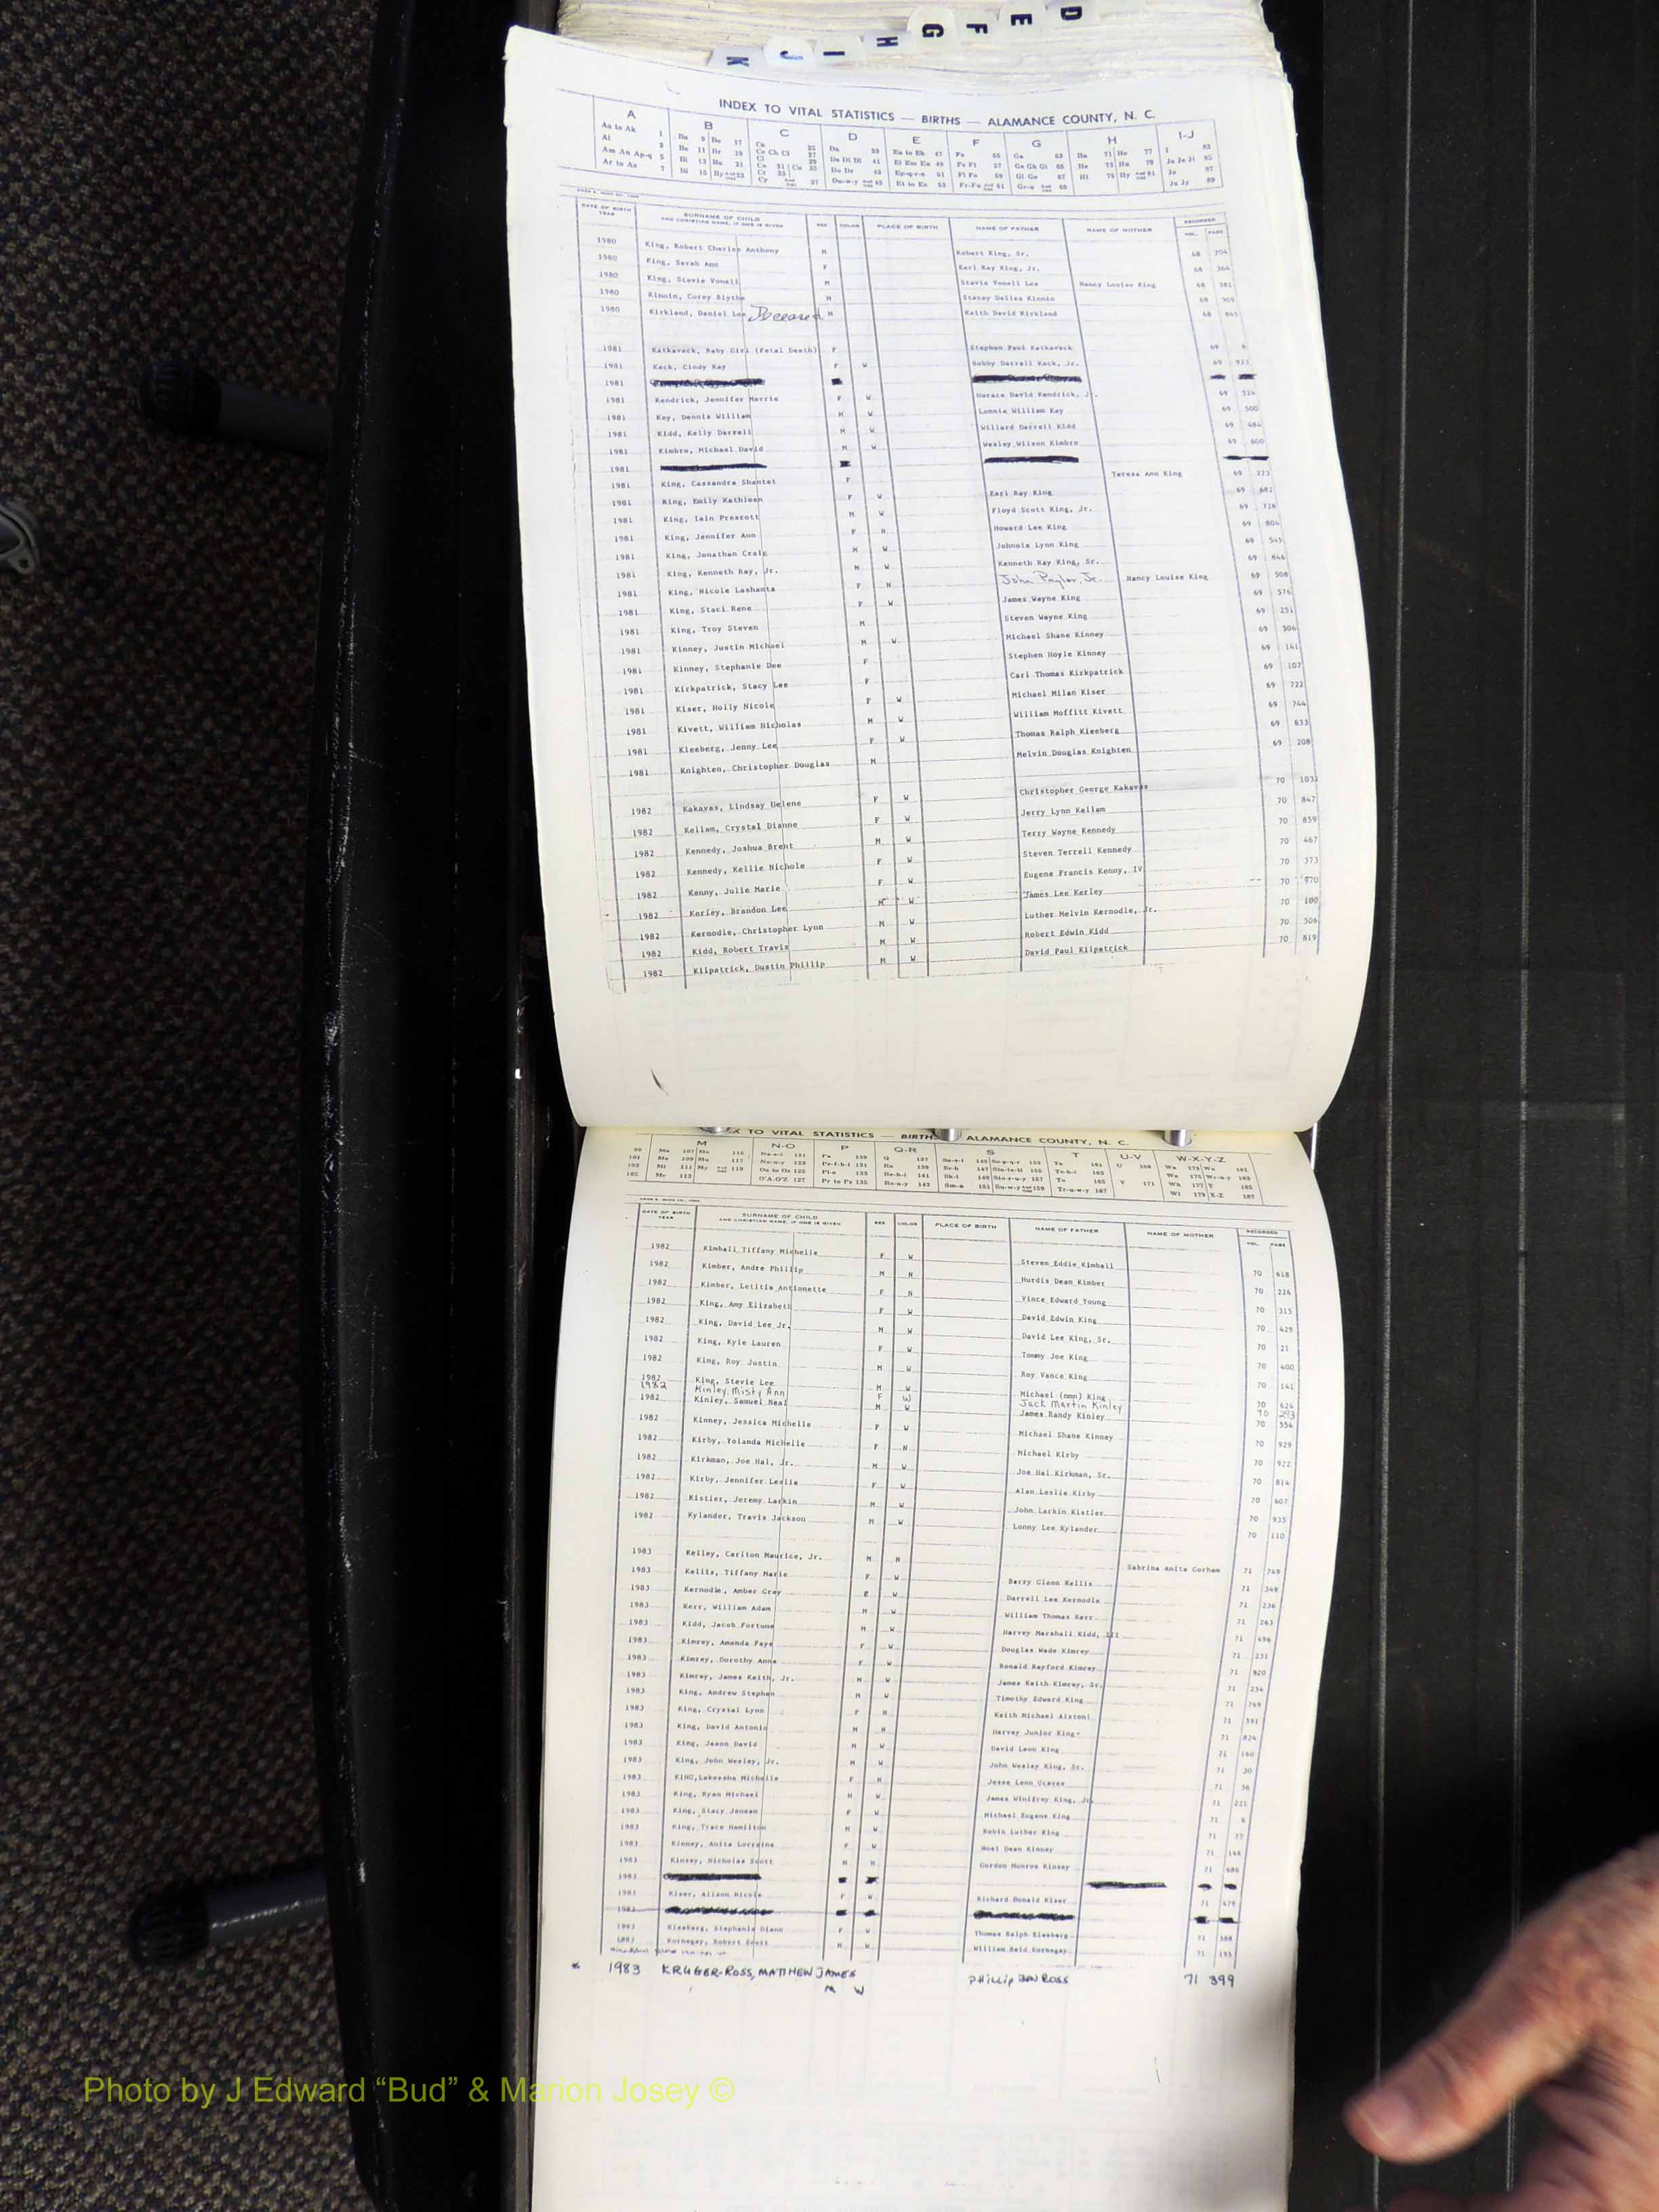 D
E
F
G
H
I
J
K
INDEX TO VITAL STATISTICS — BIRTHS — ALAMANCE COUNTY, N. C.
A B C D E F G H I-J
DATE OF BIRTH YEAR SURNAME OF CHILD AND CHRISTIAN NAME, IF ONE IS GIVEN SEX COLOR PLACE OF BIRTH NAME OF FATHER NAME OF MOTHER RECORDED VOL. PAGE
1980 King, Robert Charles Anthony M Robert King, Sr. 68 204
1980 King, Serah Ann F Earl Ray King, Jr. 68 364
1980 King, Stevie Vonell M Stevie Vonell Lea Nancy Louise King 68 381
1980 Kinnin, Corey Blythe M Stacey Delisa Kinnin 68 305
1980 Kirkland, Daniel Lee Deceased M Keith David Kirkland 68 845
1981 Katkaveck, Baby Girl (Fetal Death) F Stephen Paul Katkaveck 69 6
1981 Keck, Cindy Kay F W Bobby Darrell Keck, Jr. 69 933
1981
1981 Kendrick, Jennifer Marrie F W Horace David Kendrick, J. 69 534
1981 Key, Dennis William M W Lonnie William Key 69 500
1981 Kidd, Kelly Darrell M W Willard Darrell Kidd 69 484
1981 Kimbro, Michael David M W Wesley Wilson Kimbro 69 600
1981
1981 King, Cassandra Shantet F Teresa Ann King 69 273
1981 King, Emily Kathleen F W Earl Ray King 69 682
1981 King, Iain Prescott M W Floyd Scott King, Jr. 69 728
1981 King, Jennifer Ann F N Howard Lee King 69 804
1981 King, Jonathan Craig M W Johnnie Lynn King 69 545
1981 King, Kenneth Ray, Jr. M W Kenneth Ray King, Sr. 69 846
1981 King, Nicole Lashanta F N John Paylor, Jr. Nancy Louise King 69 508
1981 King, Staci Rene F W James Wayne King 69 576
1981 King, Troy Steven M Steven Wayne King 69 251
1981 Kinney, Justin Michael M W Michael Shane Kinney 69 506
1981 Kinney, Stephanie Dee F Stephen Hoyle Kinney 69 141
1981 Kirkpatrick, Stacy Lee F Carl Thomas Kirkpatrick 69 107
1981 Kiser, Holly Nicole F W Michael Milan Kiser 69 722
1981 Kivett, William Nicholas M W William Moffitt Kivett 69 744
1981 Kleeberg, Jenny Lee F W Thomas Ralph Kleeberg 69 633
1981 Knighten, Christopher Douglas M Melvin Douglas Knighten 69 208
1982 Kakavas, Lindsay Helene F W Christopher George Kakavas 70 1032
1982 Kellam, Crystal Dianne F W Jerry Lynn Kellam 70 847
1982 Kennedy, Joshua Brent M W Terry Wayne Kennedy 70 859
1982 Kennedy, Kellie Nichole F W Steven Terrell Kennedy 70 467
1982 Kenny, Julie Marie F W Eugene Francis Kenny, IV 70 373
1982 Kerley, Brandon Lee M W James Lee Kerley 70 970
1982 Kernodle, Christopher Lynn M W Luther Melvin Kernodle, Jr. 70 100
1982 Kidd, Robert Travis M W Robert Edwin Kidd 70 506
1982 Kilpatrick, Dustin Phillip M W David Paul Kilpatrick 70 819
TO VITAL STATISTICS — BIRTHS ALAMANCE COUNTY, N. C.
M N-O P Q-R S T U-V W-X-Y-Z
DATE OF BIRTH YEAR SURNAME OF CHILD AND CHRISTIAN NAME, IF ONE IS GIVEN SEX COLOR PLACE OF BIRTH NAME OF FATHER NAME OF MOTHER RECORDED VOL. PAGE
1982 Kimball Tiffany Michelle F W Steven Eddie Kimball 70 618
1982 Kimber, Andre Phillip M N Hurdis Dean Kimber 70 226
1982 Kimber, Letitia Antionette F N Vince Edward Young 70 315
1982 King, Amy Elizabeth F W David Edwin King 70 429
1982 King, David Lee Jr. M W David Lee King, Sr. 70 21
1982 King, Kyle Lauren F W Tommy Joe King 70 400
1982 King, Roy Justin M W Roy Vance King 70 141
1982 King, Stevie Lee M W Michael (nmn) King 70 624
1982 Kinley, Misty Ann F W Jack Martin Kinley 70 293
1982 Kinley, Samuel Neal M W James Randy Kinley 70 554
1982 Kinney, Jessica Michelle F W Michael Shane Kinney 70 929
1982 Kirby, Yolanda Michelle F N Michael Kirby 70 922
1982 Kirkman, Joe Hal, Jr. M W Joe Hal Kirkman, Sr. 70 814
1982 Kirby, Jennifer Leslie F W Alan Leslie Kirby 70 607
1982 Kistler, Jeremy Larkin M W John Larkin Kistler 70 935
1982 Kylander, Travis Jackson M W Lonny Lee Kylander 70 110
1983 Kelley, Carlton Maurice, Jr. M N Sabrina Anita Gorham 71 749
1983 Kellis, Tiffany Marie F W Barry Glenn Kellis 71 349
1983 Kernodle, Amber Gray F W Darrell Lee Kernodle 71 236
1983 Kerr, William Adam M W William Thomas Kerr 71 263
1983 Kidd, Jacob Fortune M W Harvey Marshall Kidd, III 71 496
1983 Kimrey, Amanda Faye F W Douglas Wade Kimrey 71 231
1983 Kimrey, Dorothy Anna F W Ronald Rayford Kimrey 71 920
1983 Kimrey, James Keith, Jr. M W James Keith Kimrey, Sr. 71 254
1983 King, Andrew Stephen M W Timothy Edward King 71 769
1983 King, Crystal Lynn F N Keith Michael Alston 71 591
1983 King, David Antonio M N Harvey Junior King 71 824
1983 King, Jason David M W David Leon King 71 160
1983 King, John Wesley, Jr. M W John Wesley King, Sr. 71 30
1983 KING, Lakeesha Michelle F N Jesse Leon Graves 71 36
1983 King, Ryan Michael M W James Winifrey King, Jr. 71 221
1983 King, Stacy Jensen F W Michael Eugene King 71 6
1983 King, Trace Hamilton M W Robin Luther King 71 77
1983 Kinney, Anita Lorraine F W Noel Dean Kinney 71 146
1983 Kinsey, Nicholas Scott M N Gordon Monroe Kinsey 71 686
1983
1983 Kiser, Alison Nicole F W Richard Donald Kiser 71 479
1983
1983 Kleeberg, Stephanie Diann F W Thomas Ralph Kleeberg 71 388
1983 Kornegay, Robert Scott M W William Reid Kornegay 71 193
* 1983 KRUGER-ROSS, MATTHEW JAMES M W PHILLIP IAN ROSS 71 399
Photo by J Edward “Bud” & Marion Josey ©